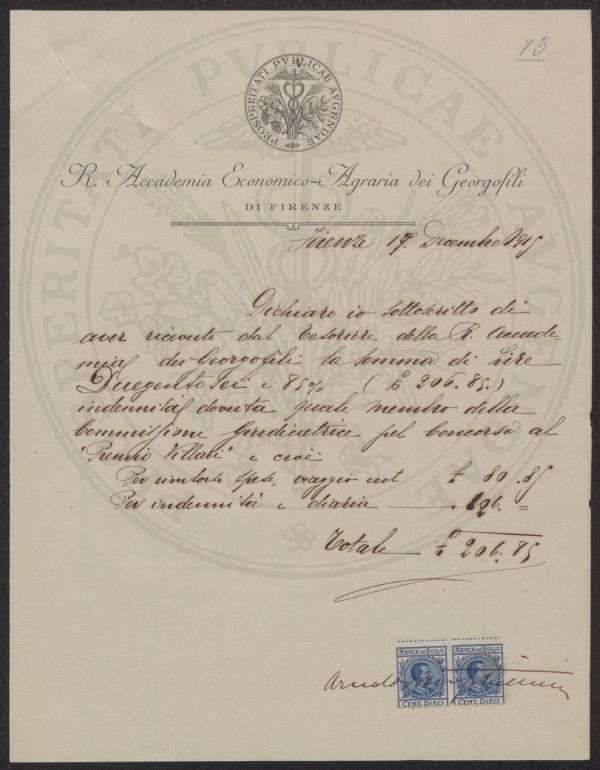 13
PROSPERITATI PVBLICAE AVGENDAE
R. Accademia Economico-Agraria dei Georgofili
DI FIRENZE
Firenze 17. Decembre 1915
Dichiaro io sottoscritto di
aver ricevuto dal Tesoriere della R. Accade-
mia dei Georgofili la somma di Lire
Duegentosei e 85% (£ 206.85.)
indennità dovuta quale membro della
Commissione Giudicatrice pel Concorso al
"Premio Villari" e cioè
Per rimborso spese, viaggio ecct £ 80.85
Per indennità e diaria — " 126. =
Totale — £ 206.85
MARCA DA BOLLO MARCA DA BOLLO
CENT. DIECI CENT. DIECI